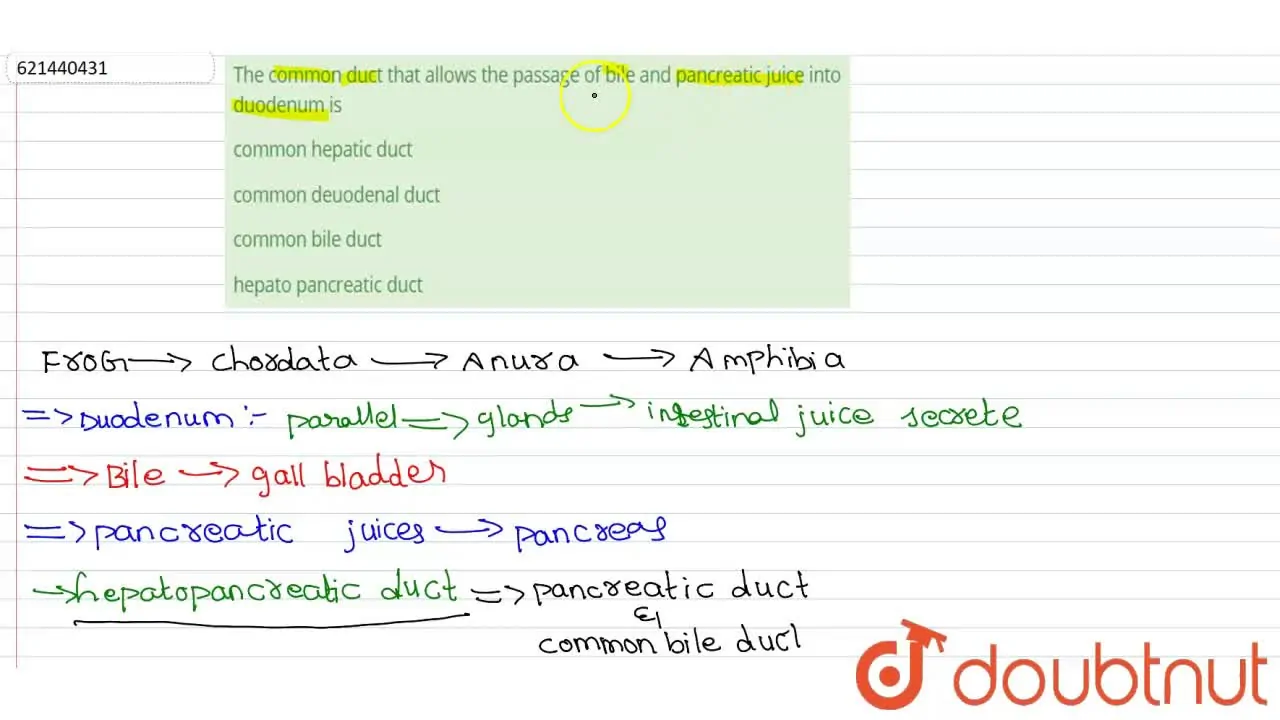 621440431
The common duct that allows the passage of bile and pancreatic juice into
duodenum is
common hepatic duct
common deuodenal duct
common bile duct
hepato pancreatic duct
FROG → Chordata → Anura → Amphibia
=> Duodenum :- parallel => glands → intestinal juice secrete
=> Bile → gall bladder
=> pancreatic juices → pancreas
→ hepatopancreatic duct => pancreatic duct
&
common bile duct
doubtnut